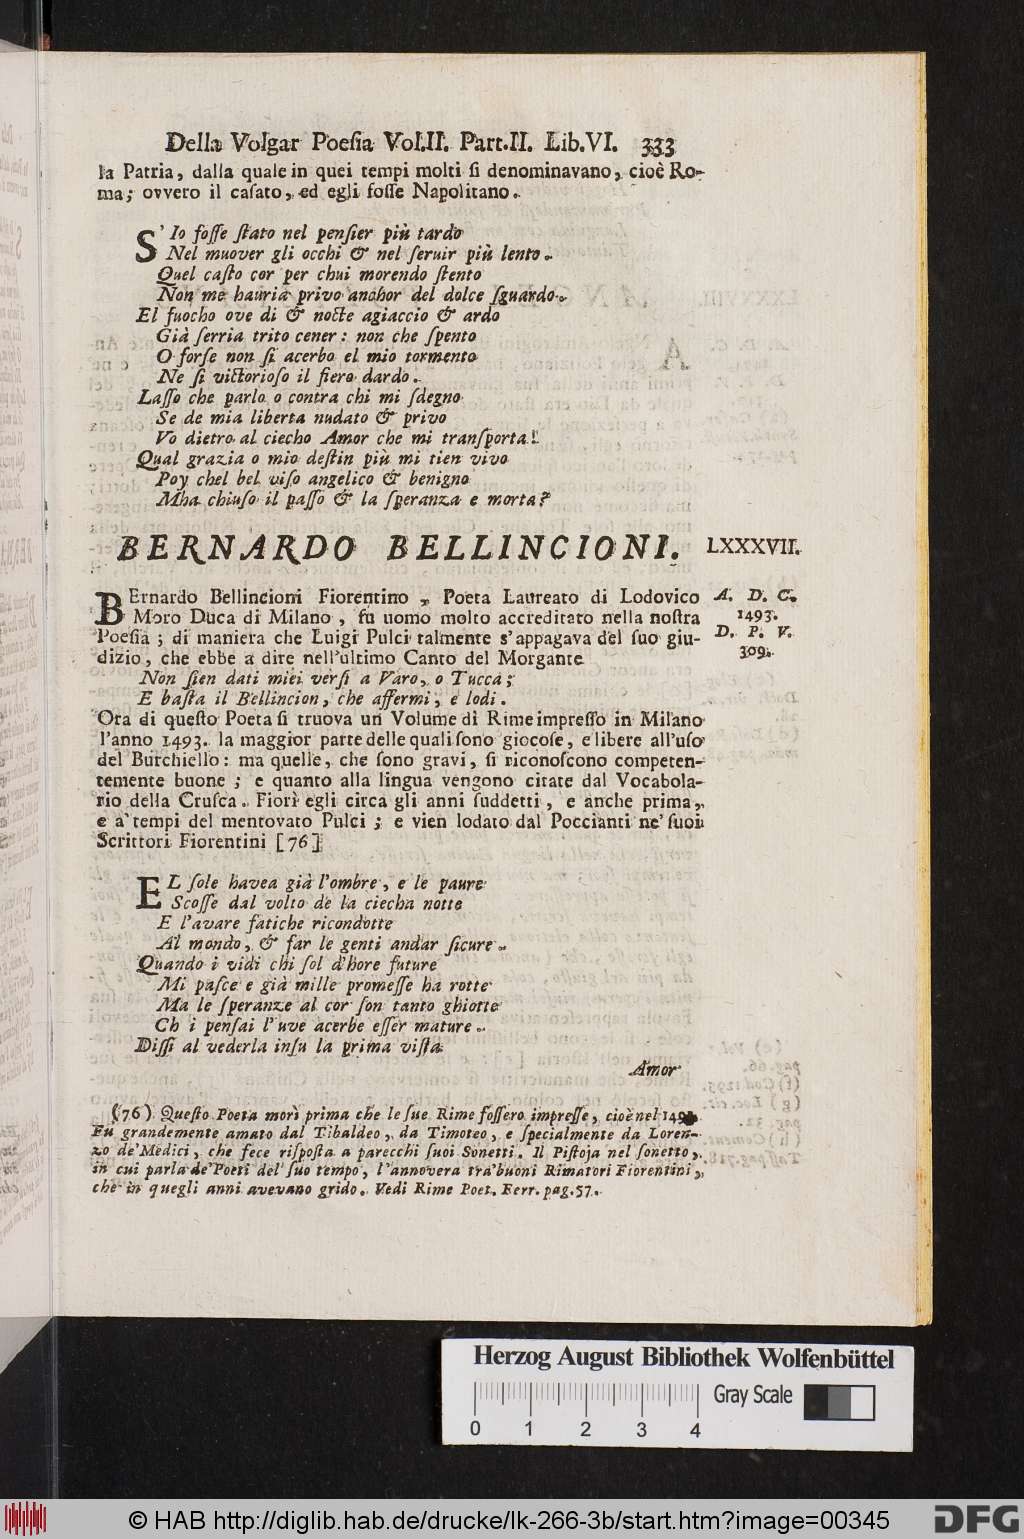 Della Volgar Poeſia Vol.II. Part.II. Lib.VI. 333
la Patria, dalla quale in quei tempi molti ſi denominavano, cioè Ro-
ma; ovvero il caſato, ed egli foſſe Napolitano.
S' Io foſſe ſtato nel penſier più tardo
Nel muover gli occhi & nel ſeruir più lento.
Quel caſto cor per chui morendo ſtento
Non me hauria privo anchor del dolce ſguardo.
El fuocho ove di & notte agiaccio & ardo
Già ſerria trito cener: non che ſpento
O forſe non ſi acerbo el mio tormento
Ne ſi vittorioſo il fiero dardo.
Laſſo che parlo o contra chi mi ſdegno
Se de mia liberta nudato & privo
Vo dietro al ciecho Amor che mi tranſporta!
Qual grazia o mio deſtin più mi tien vivo
Poy chel bel viſo angelico & benigno
Mha chiuſo il paſſo & la ſperanza e morta?
BERNARDO BELLINCIONI. LXXXVII.
BErnardo Bellincioni Fiorentino, Poeta Laureato di Lodovico A. D. C.
Moro Duca di Milano, fu uomo molto accreditato nella noſtra 1493.
Poeſia; di maniera che Luigi Pulci talmente s'appagava del ſuo giu- D. P. V.
dizio, che ebbe a dire nell'ultimo Canto del Morgante 309.
Non ſien dati miei verſi a Varo, o Tucca;
E baſta il Bellincion, che affermi, e lodi.
Ora di queſto Poeta ſi truova un Volume di Rime impreſſo in Milano
l'anno 1493. la maggior parte delle quali ſono giocoſe, e libere all'uſo
del Burchiello: ma quelle, che ſono gravi, ſi riconoſcono competen-
temente buone; e quanto alla lingua vengono citate dal Vocabola-
rio della Cruſca. Fiorì egli circa gli anni ſuddetti, e anche prima,
e a' tempi del mentovato Pulci; e vien lodato dal Poccianti ne' ſuoi
Scrittori Fiorentini [76]
EL ſole havea già l'ombre, e le paure
Scoſſe dal volto de la ciecha notte
E l'avare fatiche ricondotte
Al mondo, & far le genti andar ſicure.
Quando i vidi chi ſol d'hore future
Mi paſce e già mille promeſſe ha rotte
Ma le ſperanze al cor ſon tanto ghiotte
Ch i penſai l'uve acerbe eſſer mature.
Diſſi al vederla inſu la prima viſta
Amor
(76) Queſto Poeta morì prima che le ſue Rime foſſero impreſſe, cioè nel
Fu grandemente amato dal Tibaldeo, da Timoteo, e ſpecialmente da Loren-
zo de' Medici, che fece riſpoſta a parecchi ſuoi Sonetti. Il Piſtoja nel ſonetto,
in cui parla de' Poeti del ſuo tempo, l'annovera tra' buoni Rimatori Fiorentini,
che in quegli anni avevano grido. Vedi Rime Poet. Ferr. pag.57.
Herzog August Bibliothek Wolfenbüttel
Gray Scale
0 1 2 3 4
© HAB http://diglib.hab.de/drucke/lk-266-3b/start.htm?image=00345
DFG